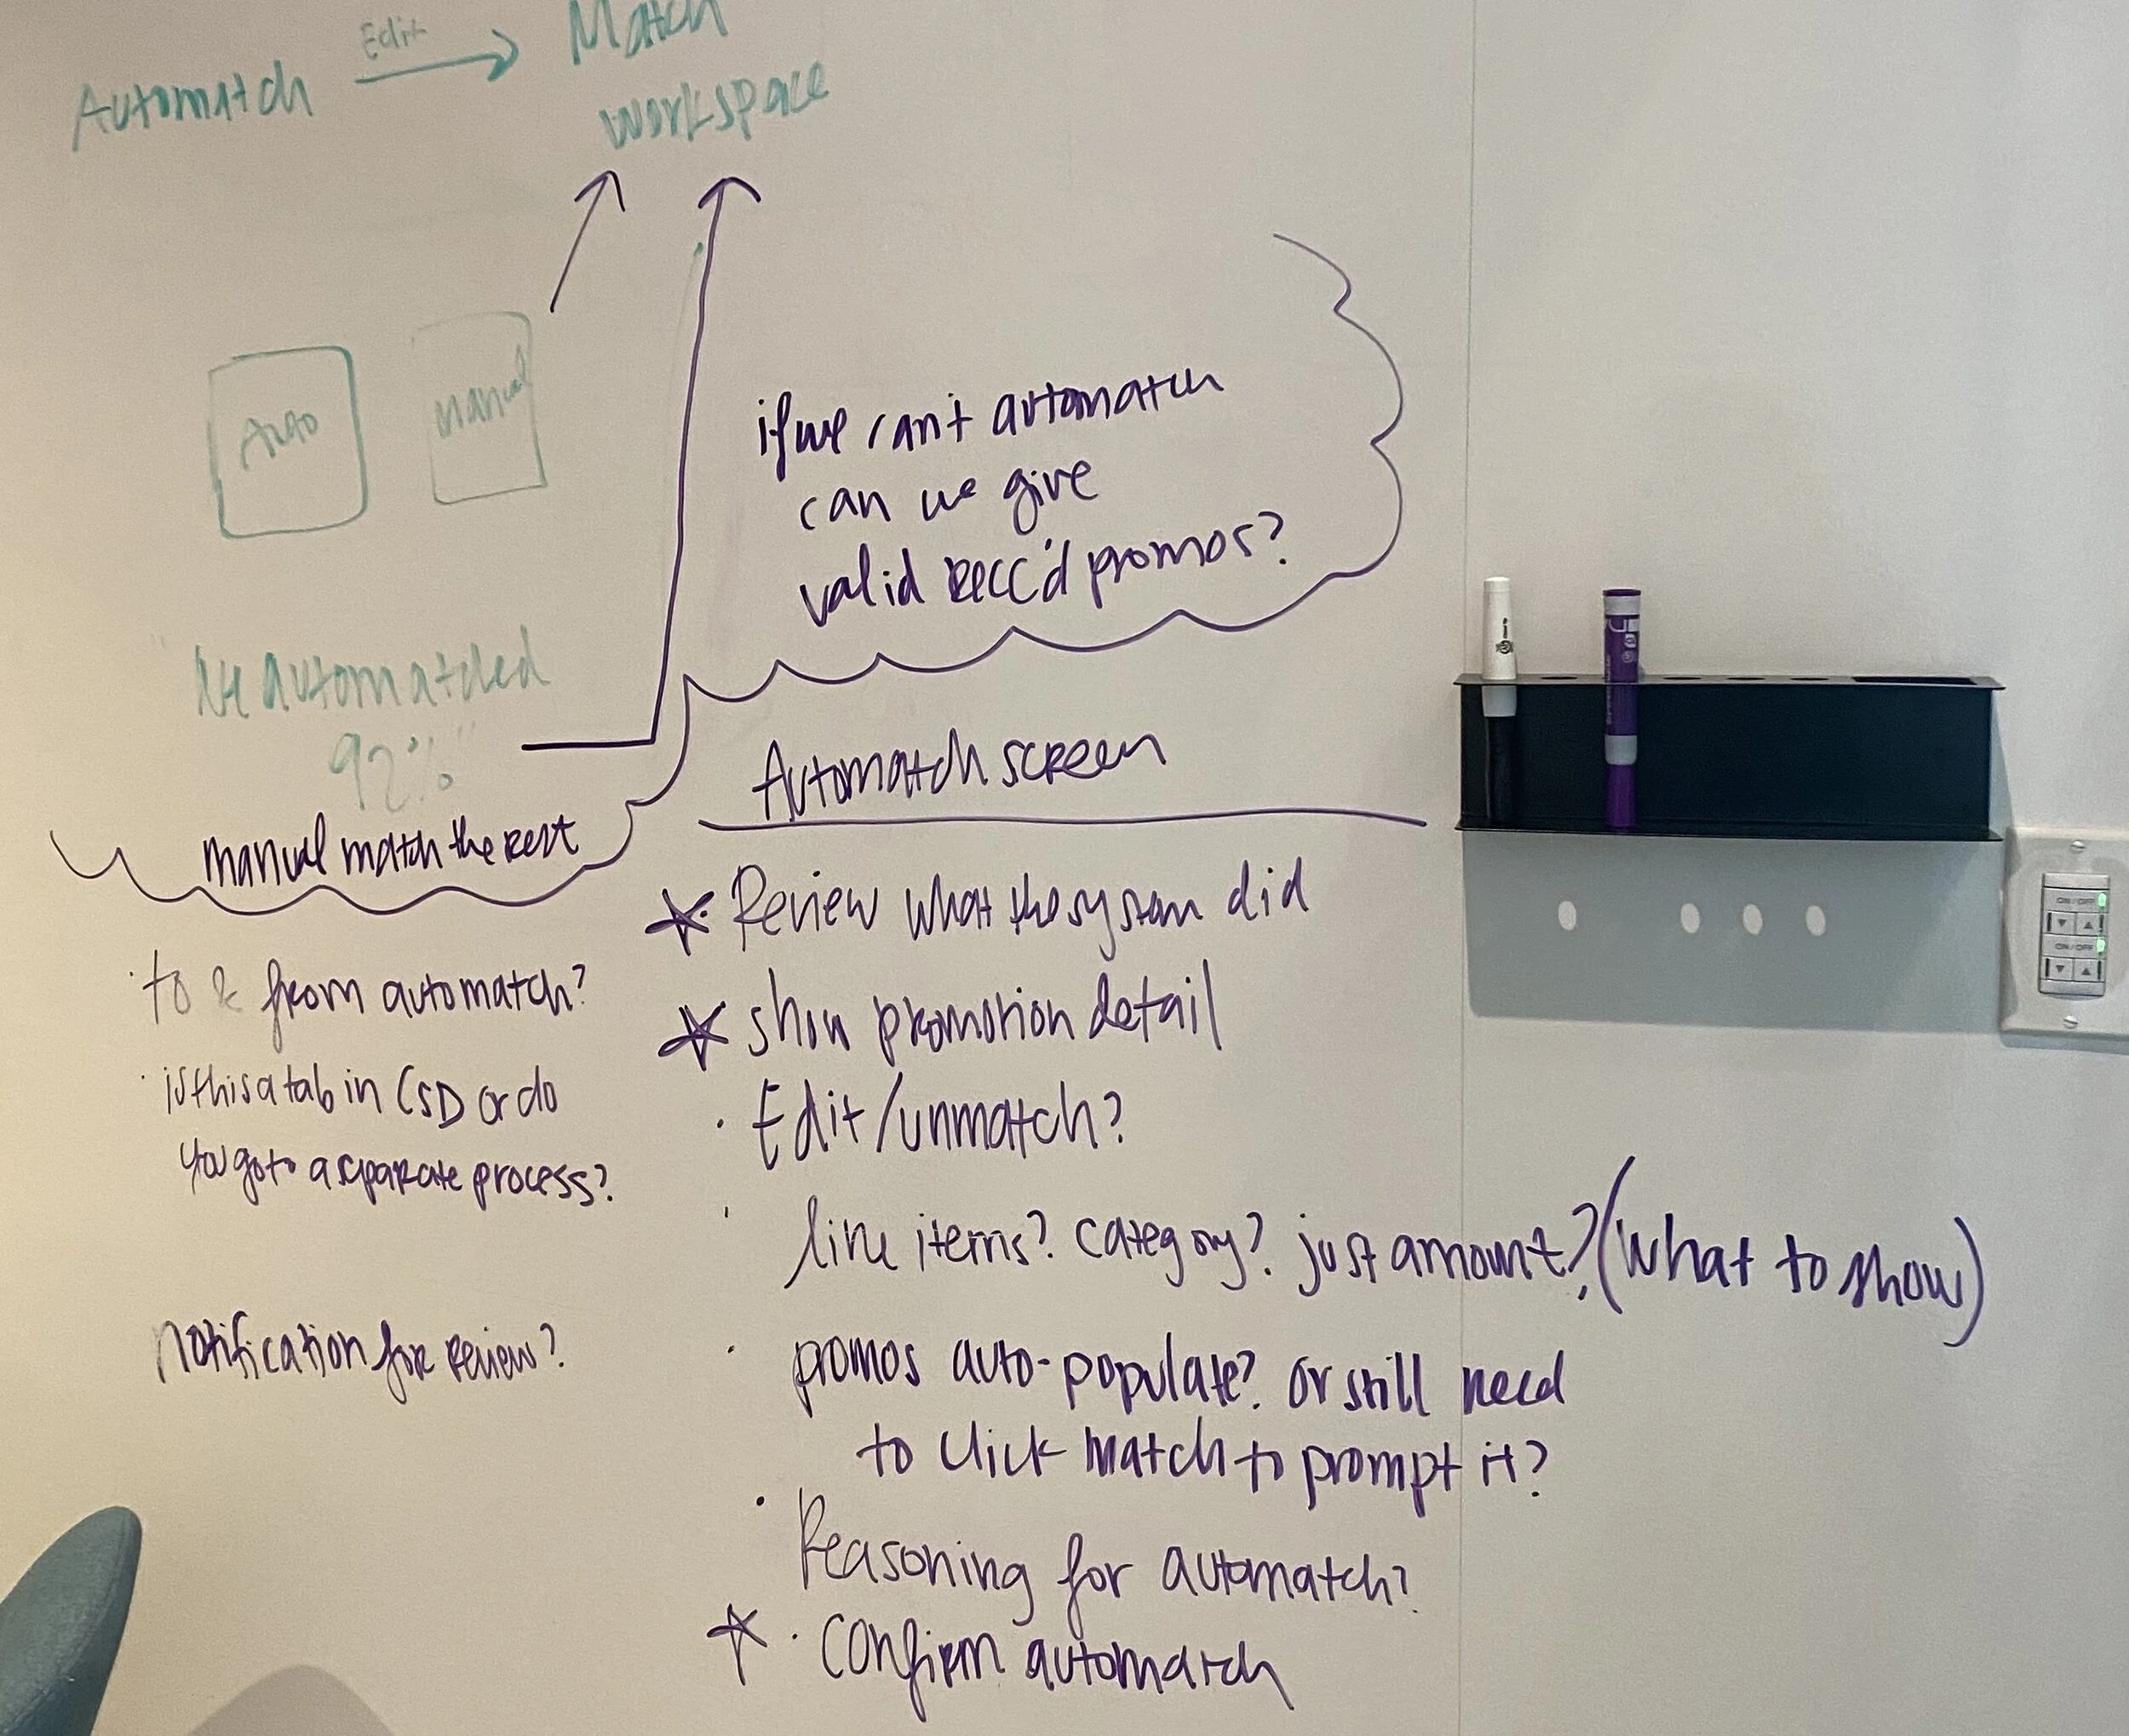 Edit
Automatch
Match
workspace
Auto
Manual
if we can't automatch
can we give
valid recc'd promos?
"We automatched
92%"
manual match the rest
to & from automatch?
is this a tab in CSD or do
you go to a separate process?
notification for review?
Automatch screen
Review what the system did
show promotion detail
Edit/unmatch?
line items? category? just amount? (what to show)
promos auto-populate? or still need
to click match to prompt it?
Reasoning for automatch?
confirm automatch
ON/OFF
ON/OFF